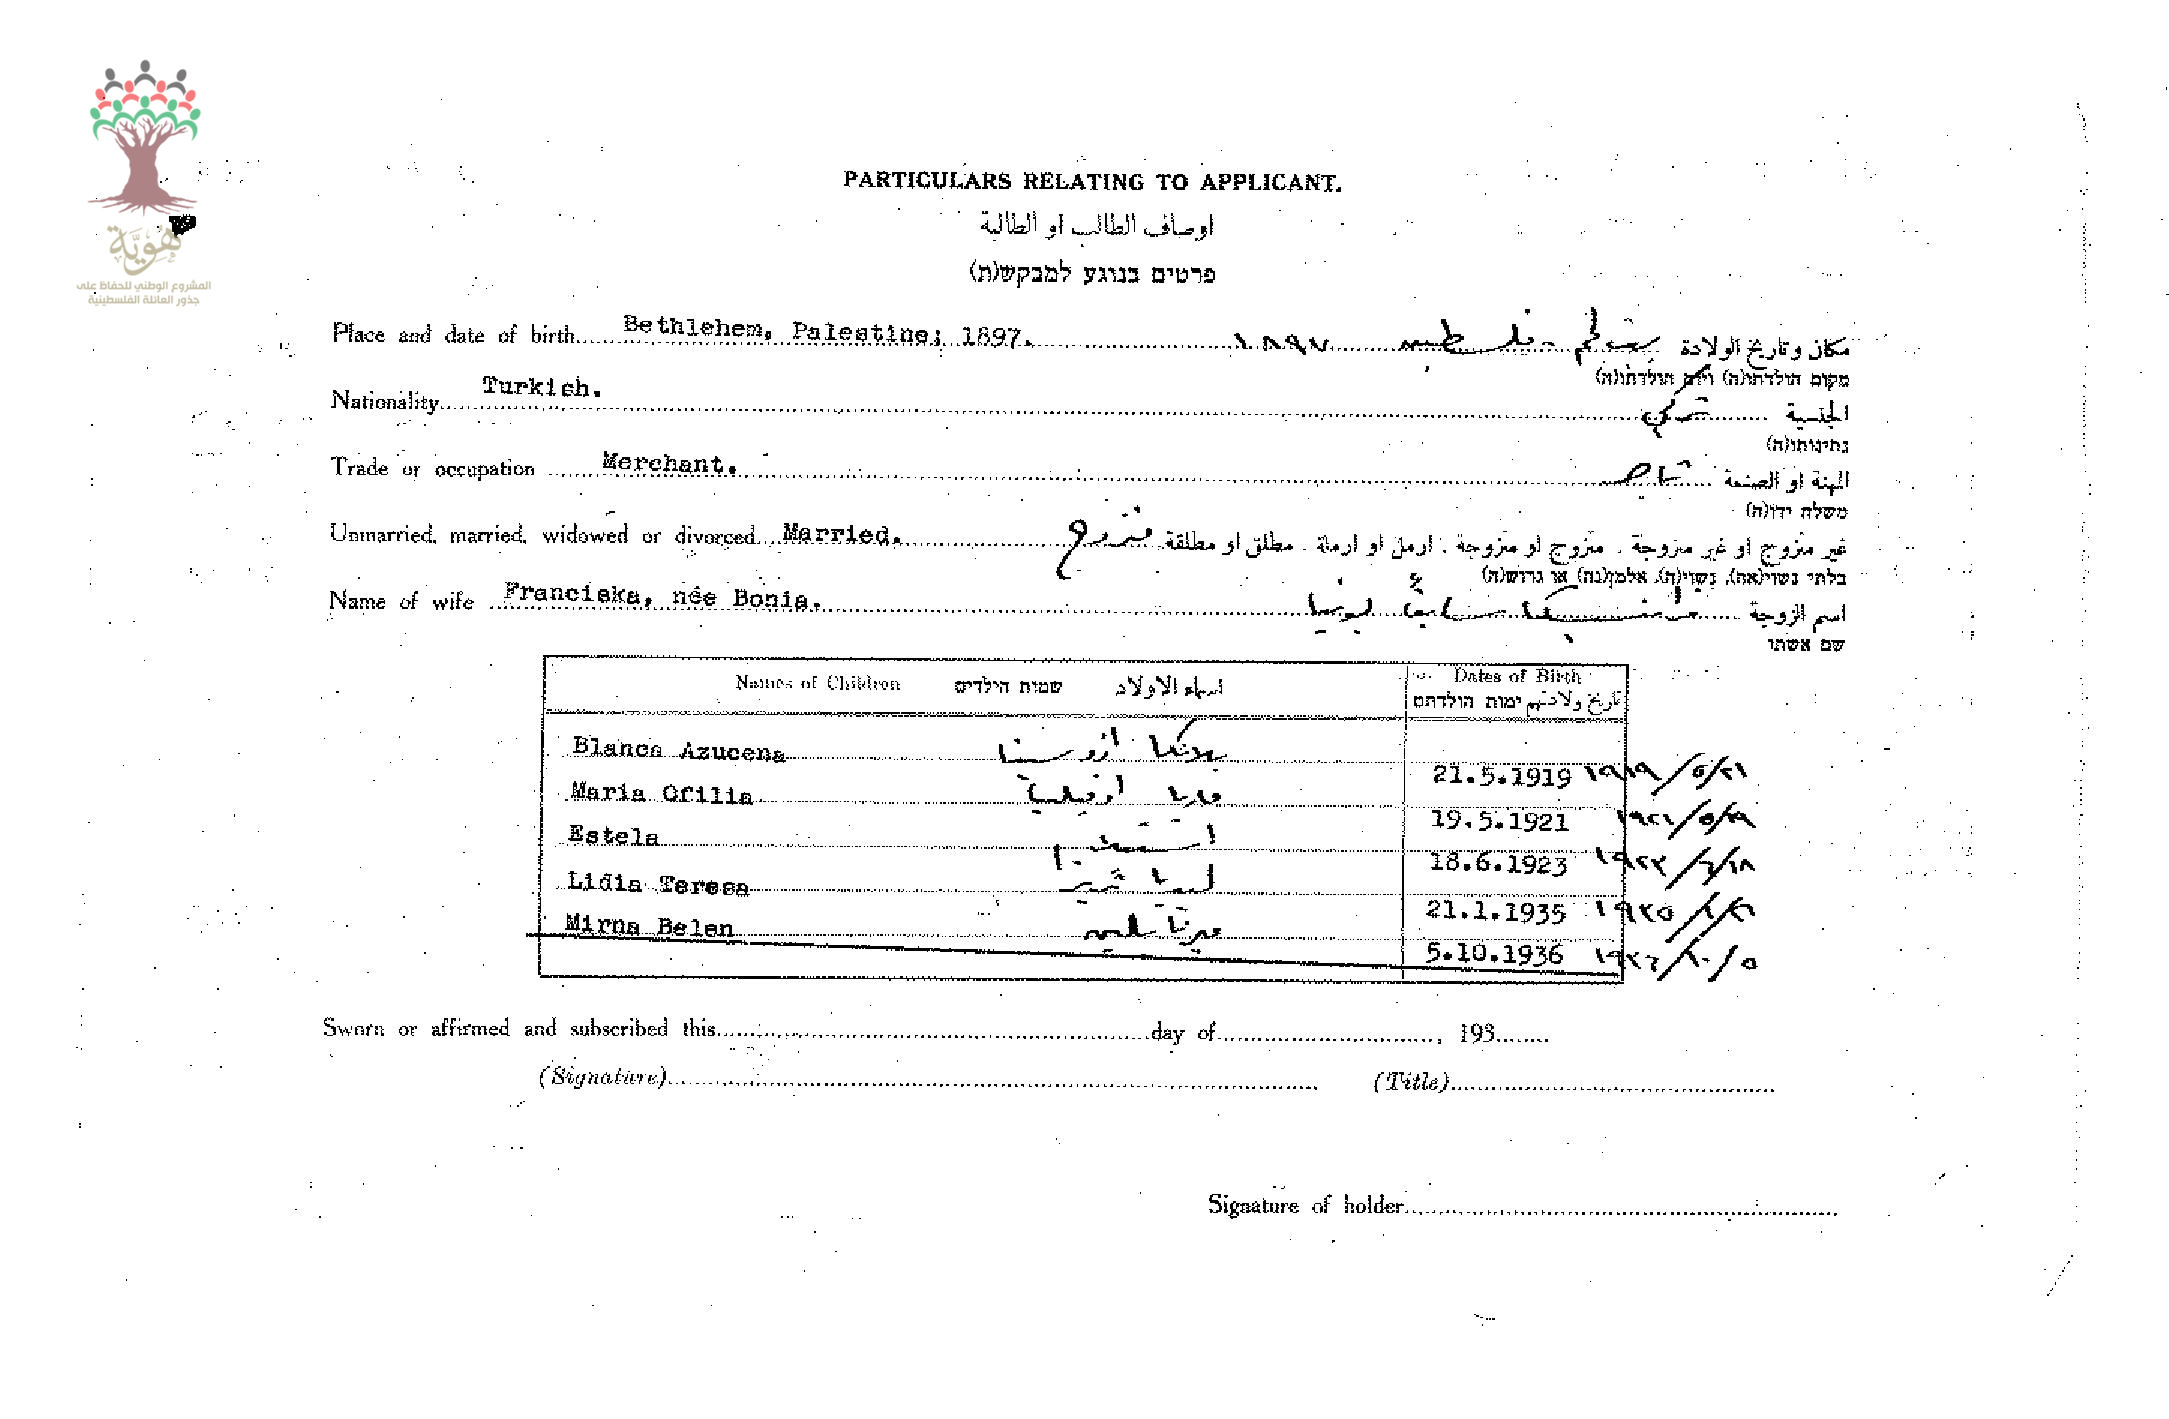 هويّة
المشروع الوطني للحفاظ على
جذور العائلة الفلسطينية
PARTICULARS RELATING TO APPLICANT.
اوصاف الطالب او الطالبة
פרטים בנוגע למבקש(ת)
Place and date of birth Bethlehem, Palestine; 1897. ١٨٩٧ بيت لحم - فلسطين مكان وتاريخ الولادة
מקום הולדתו(ה) ויום הולדתו(ה)
Nationality Turkish. تركي الجنسية
נתינותו(ה)
Trade or occupation Merchant. تاجر المهنة او الصنعة
משלח ידו(ה)
Unmarried, married, widowed or divorced Married. متزوج غير متزوج او غير متزوجة . متزوج او متزوجة . ارمل او ارملة . مطلق او مطلقة
בלתי נשוי(אה), נשוי(ה), אלמן(נה) או גרוש(ה)
Name of wife Franciska, née Bonia. اسم الزوجة
שם אשתו
Names of Children שמות הילדים اسماء الاولاد Dates of Birth
تاريخ ولادتهم ימות הולדתם
Blanca Azucena بلانكا ازوسنا 21.5.1919 ١٩١٩/٥/٢١
Maria Ofilia ماريا اوفيليا 19.5.1921 ١٩٢١/٥/١٩
Estela 18.6.1923 ١٩٢٣/٦/١٨
Lidia Teresa ليديا تيريزا 21.1.1935 ١٩٣٥/١/٢١
Mirna Belen ميرنا بلين 5.10.1936 ١٩٣٦/١٠/٥
Sworn or affirmed and subscribed this day of , 193
(Signature) (Title)
Signature of holder